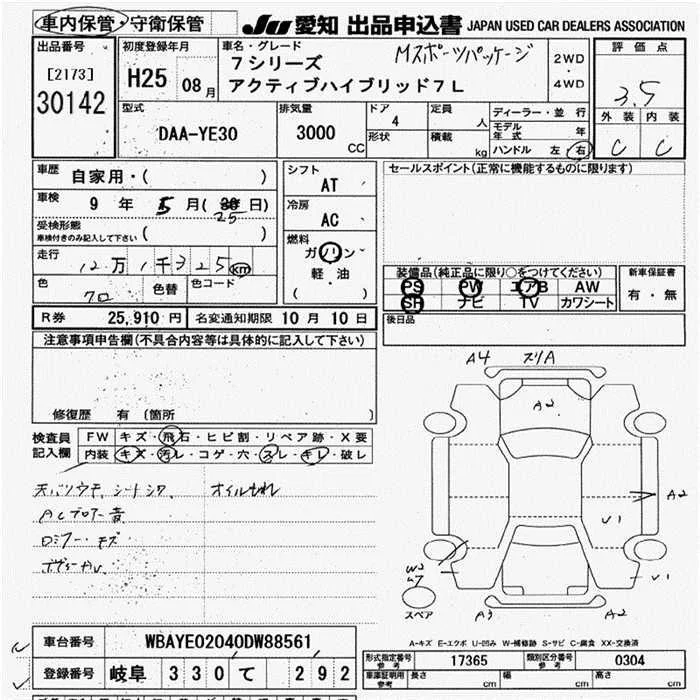 車内保管・守衛保管
JU 愛知 出品申込書 JAPAN USED CAR DEALERS ASSOCIATION
出品番号
[2173]
30142
初度登録年月
H25 08 月
車名・グレード
7シリーズ Mスポーツパッケージ
アクティブハイブリッド7L
2WD
・
4WD
評価点
3.5
外装 内装
C C
型式
DAA-YE30
排気量
3000 CC
ドア
4
形状
定員
人
積載
kg
ディーラー・並行
モデル年式 年
ハンドル 左 右
車歴
自家用・( )
車検
9 年 5 月( 25 日)
受検形態
車検付きのみ記入して下さい ( )
走行
12万1千325km
色
クロ
色替
色コード
シフト
AT
冷房
AC
燃料
ガソリン
軽・油
( )
セールスポイント(正常に機能するものに限ります)
装備品(純正品に限り○をつけてください)
PS PW エアB AW
SR ナビ TV カワシート
新車保証書
有・無
後日品
R券 25,910 円 名変通知期限 10 月 10 日
注意事項申告欄(不具合内容等は具体的に記入して下さい)
修復歴 有 〔箇所
検査員
記入欄
FW キズ・飛石・ヒビ割・リペア跡・X要
内装 キズ・汚レ・コゲ・穴・スレ・キレ・破レ
天バリウキ、シートシワ、オイルもれ
ACブロアー音
A4 スリA
A2
A2
U1
W2
U1
A3 A2
スペア
A-キズ E-エクボ U-凹み W-補修跡 S-サビ C-腐食 XX-交換済
車台番号 WBAYE02040DW88561
登録番号 岐阜 330 て 292
型式指定番号
参考
17365
類別区分番号
参考
0304
車庫証明用
参考
長さ cm 幅 cm 高さ cm